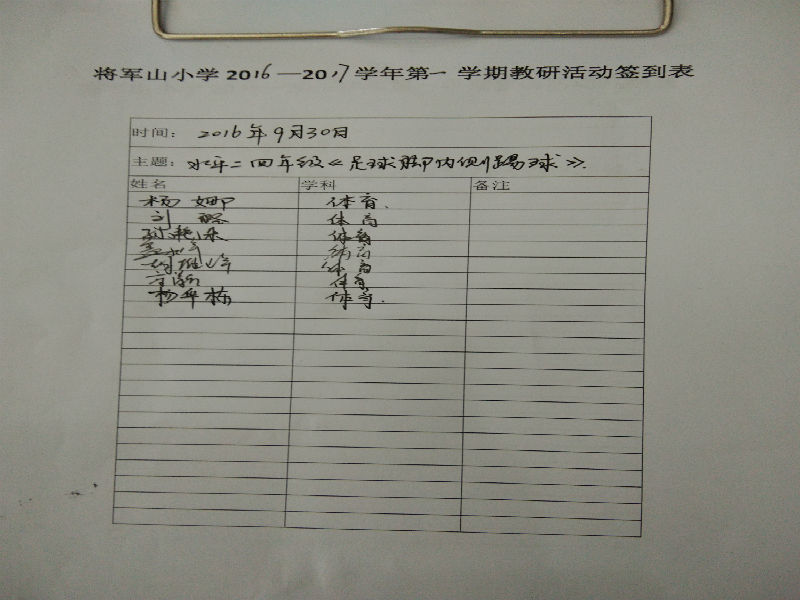 将军山小学2016—2017学年第一 学期教研活动签到表
时间: 2016年9月30日
主题: 水平二四年级《足球脚内侧踢球》.
姓名 学科 备注
杨 娜 体育.
刘 体育
体育
体育
体育
体育
杨华栋 体育.